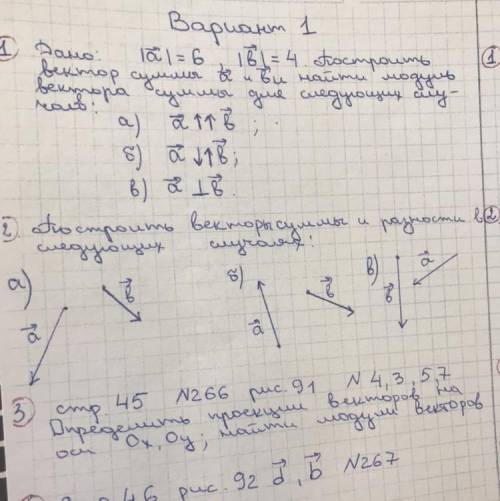 Вариант 1
1 Дано: |a⃗|=6, |b⃗|=4. Построить
вектор суммы a⃗ и b⃗ и найти модуль
вектора суммы для следующих слу-
чаев:
а) a⃗ ↑↑ b⃗;
б) a⃗ ↓↑ b⃗;
в) a⃗ ⊥ b⃗.
2 Построить векторы суммы и разности в
следующих случаях:
а) a⃗ b⃗ б) a⃗ b⃗ в) b⃗ a⃗
3 стр. 45 N266 рис. 91 N 4,3,5,7
Определить проекции векторов на
оси Ox, Oy; найти модули векторов
46 рис. 92 d⃗, b⃗ N267
1
2